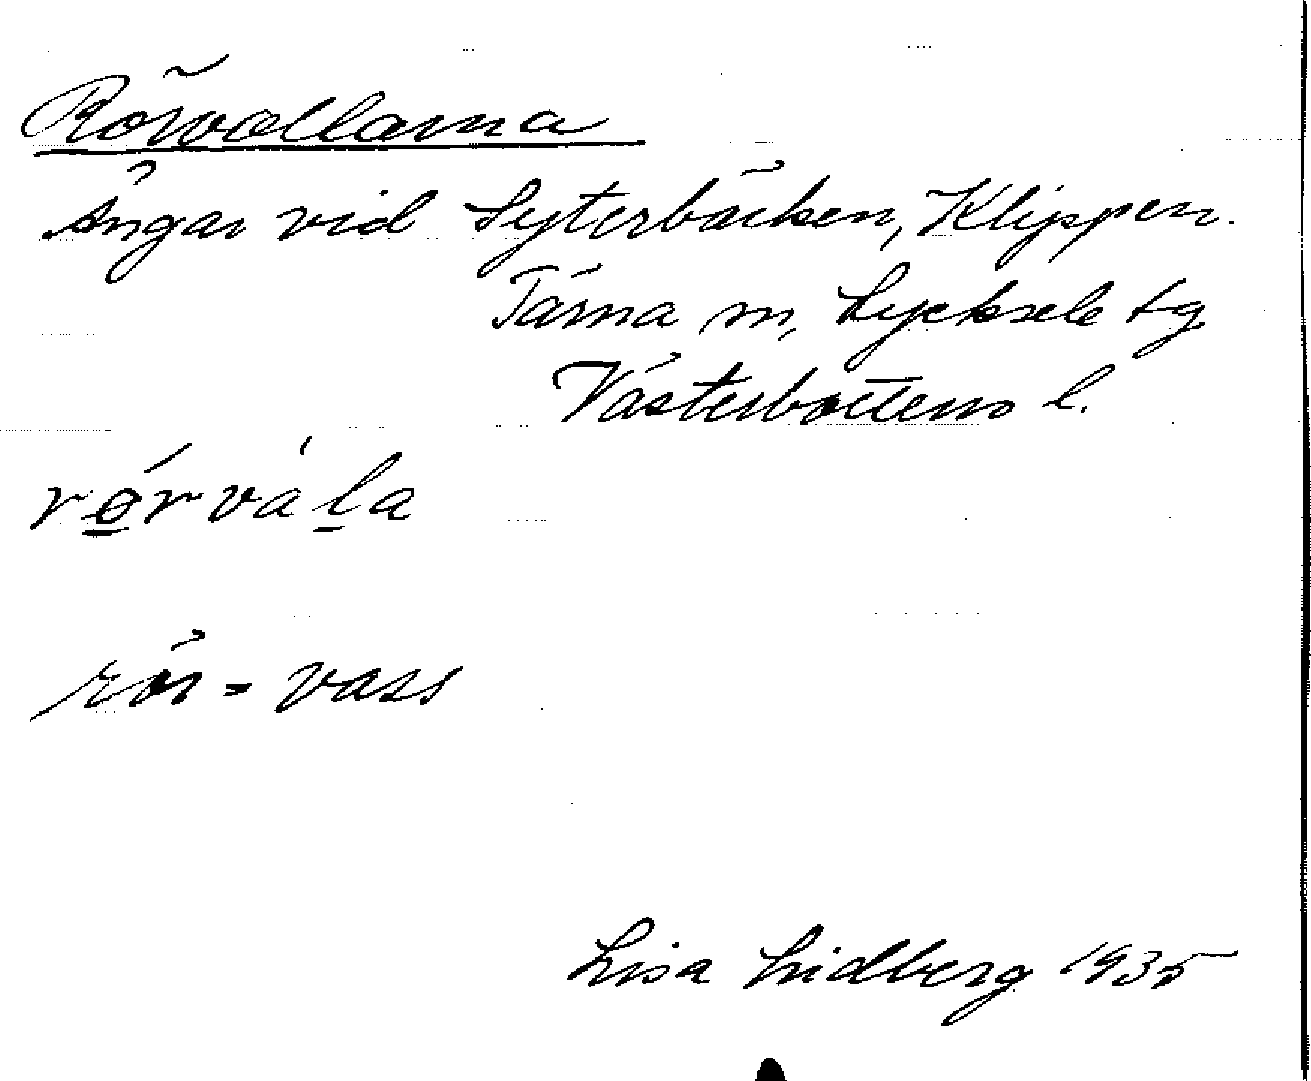 Rörvallarna
Ängar vid Syterbäcken, Klippen.
Tärna sn, Lycksele tg
Västerbottens l.
rørvála
rör = vass
Lisa Lidberg 1935